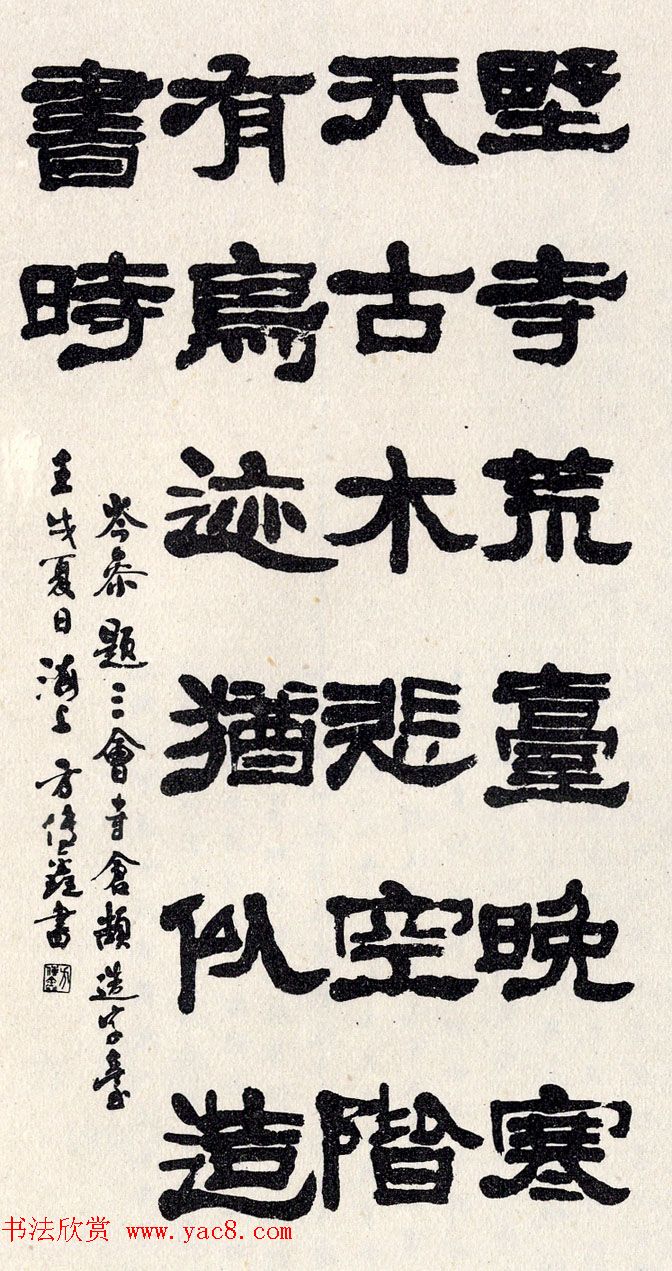 野寺荒臺晚寒
天古木悲空階
有鳥迹猶似造
書時
岑参題三會寺倉頡造字臺
壬戌夏日海上方傳鑫書
书法欣赏 www.yac8.com